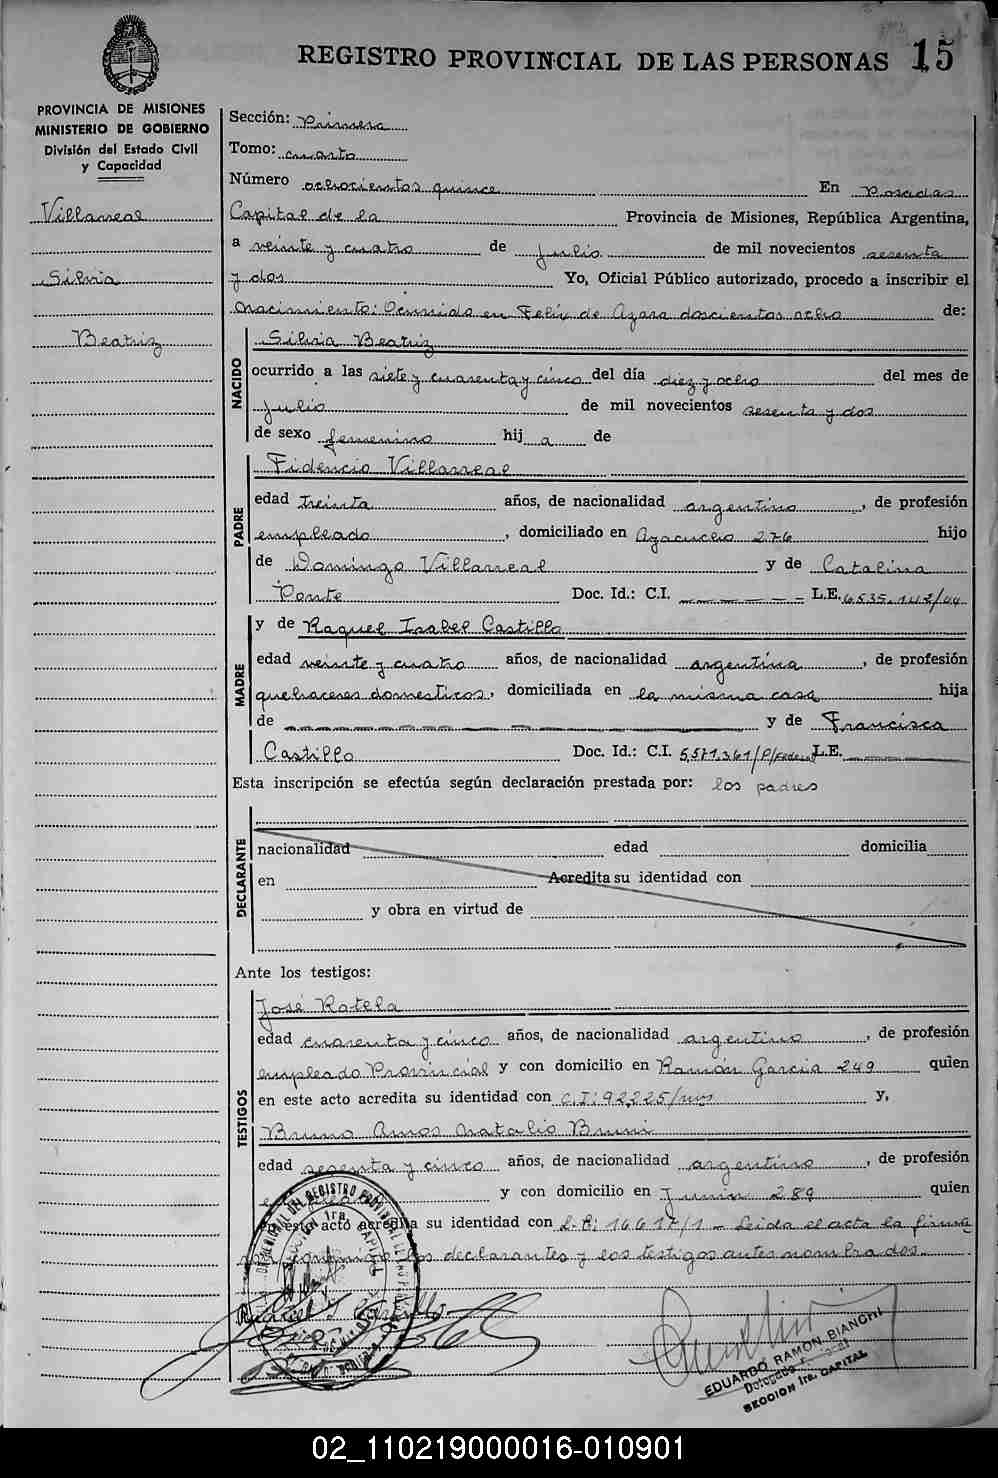 REGISTRO PROVINCIAL DE LAS PERSONAS 15
PROVINCIA DE MISIONES
MINISTERIO DE GOBIERNO
División del Estado Civil
y Capacidad
Villarreal
Silvia
Beatriz
Sección: Primera
Tomo: cuarto
Número ochocientos quince En Posadas
Capital de la Provincia de Misiones, República Argentina,
a veinte y cuatro de Julio de mil novecientos sesenta
y dos Yo, Oficial Público autorizado, procedo a inscribir el
Nacimiento: Ocurrido en Felix de Azara doscientos ocho de:
NACIDO
Silvia Beatriz
ocurrido a las siete y cuarenta y cinco del día diez y ocho del mes de
Julio de mil novecientos sesenta y dos
de sexo femenino hij a de
PADRE
Fidencio Villarreal
edad treinta años, de nacionalidad argentino, de profesión
empleado, domiciliado en Ayacucho 276 hijo
de Domingo Villarreal y de Catalina
Ponte Doc. Id.: C.I. L.E.
MADRE
y de Raquel Isabel Castillo
edad veinte y cuatro años, de nacionalidad argentina, de profesión
quehaceres domesticos, domiciliada en la misma casa hija
de y de Francisca
Castillo Doc. Id.: C.I. 5,571,361/P/Federal L.E.
Esta inscripción se efectúa según declaración prestada por: los padres
DECLARANTE
nacionalidad edad domicilia
en Acredita su identidad con
y obra en virtud de
Ante los testigos:
TESTIGOS
José Rotela
edad cuarenta y cinco años, de nacionalidad argentino, de profesión
empleado Provincial y con domicilio en Ramón Garcia 249 quien
en este acto acredita su identidad con C.I: 92,225/mns y,
Bruno Amos Natalio Bruni
edad sesenta y cinco años, de nacionalidad argentino, de profesión
y con domicilio en Junin 289 quien
en este acto acredita su identidad con Leida el acta la firma
los declarantes y los testigos antes nombrados.
EDUARDO RAMON BIANCHI
SECCION 1ra. CAPITAL
02_110219000016-010901